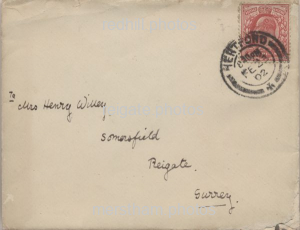 HERTFORD
02
To
Mrs Henry Willey
Somersfield
Reigate.
Surrey.